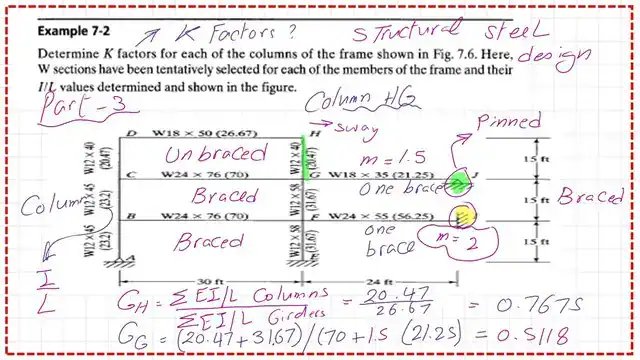 Example 7-2
K Factors ?
structural steel
design
Determine K factors for each of the columns of the frame shown in Fig. 7.6. Here,
W sections have been tentatively selected for each of the members of the frame and their
I/L values determined and shown in the figure.
Part-3
Column HG
→ sway
Pinned
D W18 × 50 (26.67) H
W12 × 40
(20.47)
Unbraced
W12 × 40
(20.47)
m = 1.5
15 ft
C W24 × 76 (70) G W18 × 35 (21.25) J
Column
W12 × 45
(23.2)
Braced
W12 × 58
(31.67)
one brace
15 ft
Braced
B W24 × 76 (70) F W24 × 55 (56.25)
W12 × 45
(23.2)
Braced
W12 × 58
(31.67)
one
brace
m = 2
15 ft
A
I
L
30 ft
24 ft
G_H = Σ EI/L Columns / Σ EI/L Girders = 20.47 / 26.67 = 0.7675
G_G = (20.47 + 31.67)/(70 + 1.5 (21.25) = 0.5118